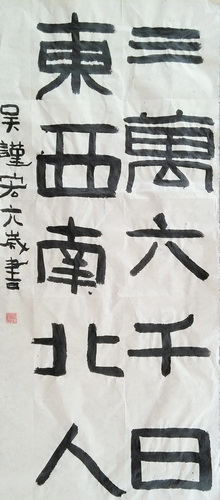 三萬六千日
東西南北人
吴謹宏六歲書